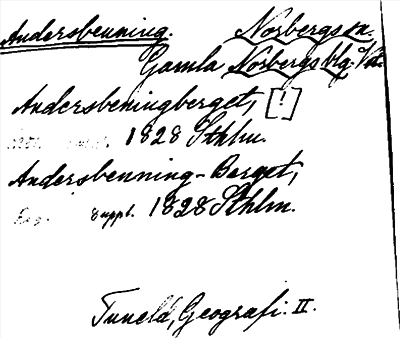 Andersbenning. Norbergs sn.
Gamla Norbergs blg. Vm.
Andersbeningberget, [!]
1828 Sthlm.
Andersbenning-Berget,
Reg. suppl. 1828 Sthlm.
Tuneld, Geografi. II.